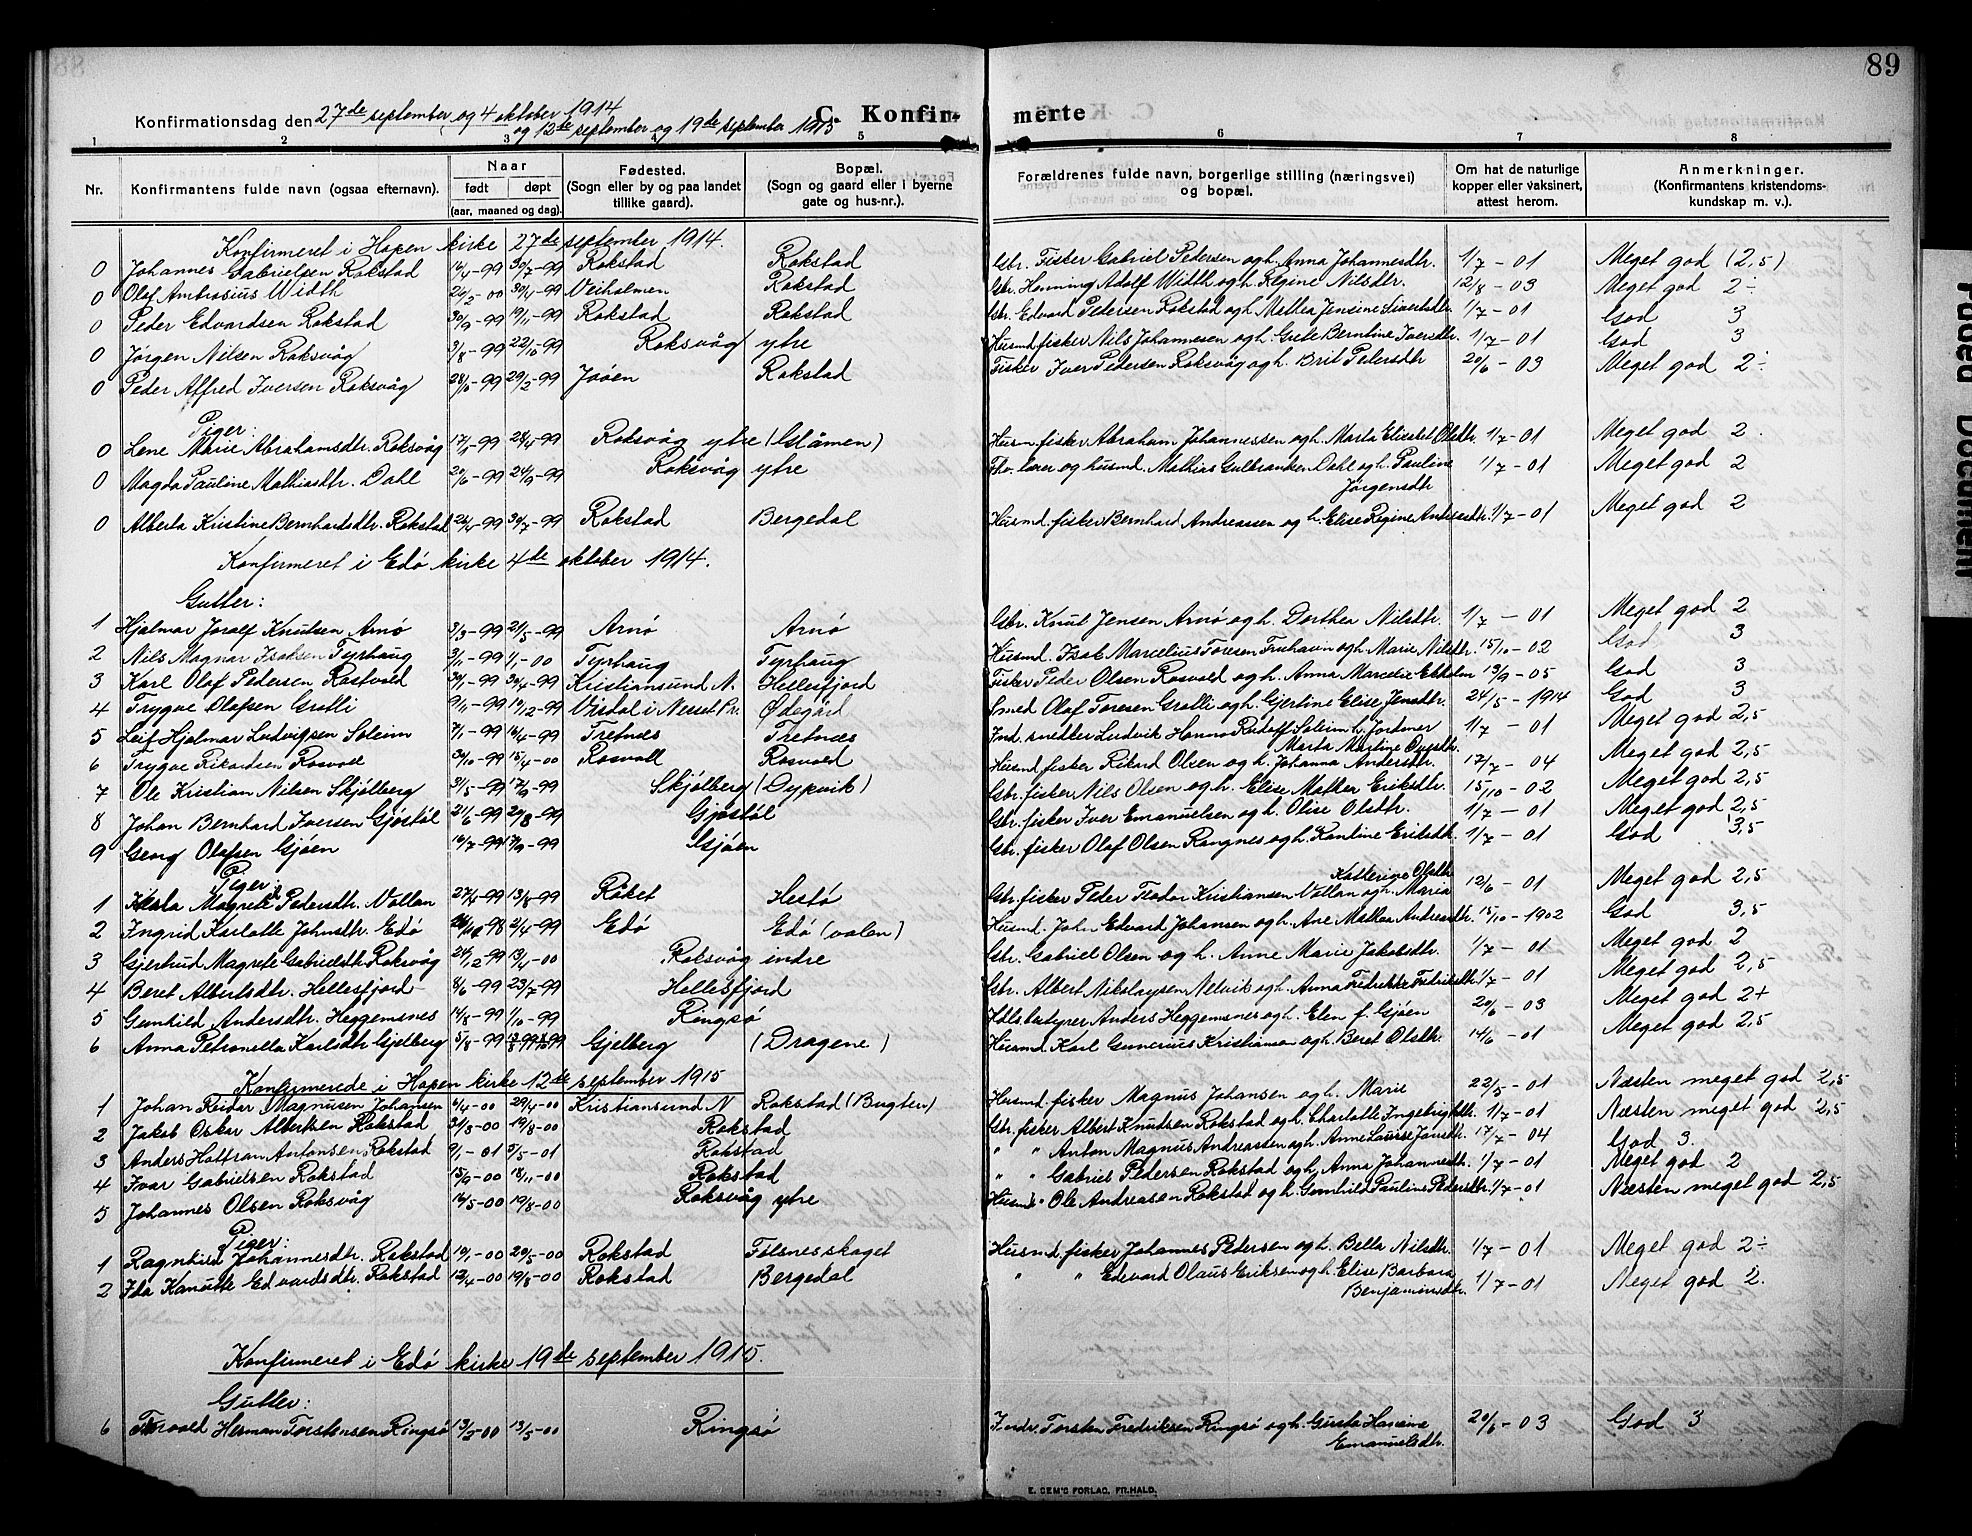 89
Konfirmationsdag den 27de september og 4 oktober 1914
og 12te september og 19de september 1915
C. Konfir- merte
1 2 3 4 5 6 7 8
Nr. Konfirmantens fulde navn (ogsaa efternavn). Naar født døpt (aar, maaned og dag). Fødested. (Sogn eller by og paa landet tillike gaard). Bopæl. (Sogn og gaard eller i byerne gate og hus-nr.). Forældrenes fulde navn, borgerlige stilling (næringsvei) og bopæl. Om hat de naturlige kopper eller vaksinert, attest herom. Anmerkninger. (Konfirmantens kristendoms- kundskap m. v.).
Konfirmeret i Hopen kirke 27de september 1914.
0 Johannes Gabrielsen Rokstad 16/4-99 30/7-99 Rokstad Rokstad Gbr. Fisker Gabriel Pedersen og h. Anna Johannesdtr. 1/7-01 Meget god (2,5)
0 Olaf Ambrosius Width 30/4-99 Veiholmen Rokstad Gbr. Henning Adolf Width og h. Regine Nilsdtr. 12/8-03 Meget god 2÷
0 Peder Edvardsen Rokstad 30/9-99 19/11-99 Rokstad Rokstad Gbr. Edvard Pedersen Rokstad og h. Mathea Jensine Sivertsdtr. 1/7-01 God 3
0 Jørgen Nilsen Roksvåg 3/8-99 22/10-99 Roksvåg ytre Husmd. fisker Nils Johannesen og h. Grete Berntine Iversdtr. 1/7-01 God 3
0 Peder Alfred Iversen Roksvåg 29/2-99 Rokstad Fisker Iver Pedersen Roksvåg og h. Brit Petersdtr 20/6-03 Meget god 2÷
Piger:
0 Lene Marie Abrahamsdtr. Roksvåg 17/1-99 Roksvåg ytre Husm. fisker Abraham Johannessen og h. Marta Elisabet Olsdtr. 1/7-01 Meget god 2.
0 Magda Pauline Mathiasdtr. Dahl 20/6-99 24/9-99 Roksvåg ytre Fhv. lærer og husmd. Mathias Gulbrandsen Dahl og h. Pauline 1/7-01 Meget god 2
Jørgensdtr
0 Alberta Kristine Bernhardsdtr. Rokstad 30/7-99 Rokstad Bergedal Husmd. fisker Bernhard Andreassen og h. Elise Regine Andreasdtr. 1/7-01 Meget god 2
Konfirmeret i Edø kirke 4de oktober 1914.
Gutter:
1 Hjalmar Joralf Knutsen Arnø 3/3-99 21/5-99 Arnø Arnø Gbr. Knut Jensen Arnø og h. Dorthea Nilsdtr. 1/7-01 Meget god 2
2 Nils Magnar Isaksen Tyrhaug 3/11-99 1/1-00 Tyrhaug Tyrhaug Husmd. Isak Marcelius Toresen og h. Marie Nilsdtr. 15/10-02 God 3
3 Karl Olaf Pedersen Rostvold 30/1-99 30/4-99 Kristiansund N. Hellesfjord Fisker Peder Olsen Rosvold og h. Anna Marcelie Ekholm 13/9-05 God 3
4 Trygve Olafsen Grotli 9/11-99 Nesset Pr. Ødegård Smed Olaf Toresen Grotli og h. Gjertine Elise Jensdtr. 24/5-1914 God 3
5 Leif Hjalmar Ludvigsen Soleim 7/1-99 16/4-99 Tretnæs Tretnæs Ind. snedker Ludvik Hanno Soleim h. Jordmor 1/7-01 Meget god 2,5
Marta Martine
6 Trygve Rikardsen Rosvoll 30/10-99 15/4-00 Rosvoll Rosvold Husmd. fisker Rikard Olsen og h. Johanna Andersdtr. 12/7-04 Meget god 2,5
7 Ole Kristian Nilsen Skjølberg 3/5-99 17/9-99 Skjølberg (Dypvik) Gbr. fisker Nils Olsen og h. Elise Mathea Eriksdtr. 15/10-02 Meget god 2,5
8 Johan Bernhard Iversen Gjøstøl 21/6-99 20/8-99 Gjøstøl Gbr. fisker Iver Emanuelsen og h. Olise Olsdtr. 1/7-01 Meget god 2,5
9 Georg Olafsen Gjøen 16/7-99 17/9-99 Gjøen Gbr. fisker Olaf Olsen Rangnes og h. Karoline Eriksdtr. 1/7-01 God 3,5
Piger:
Katherine Olsdtr
1 Magrete Pedersdtr. Vollan 27/4-99 13/8-99 Røket Hestø Gbr. fisker Peder Teodor Kristiansen Vollan og h. Maria 12/6-01 Meget god 2,5
2 Ingrid Karlotte Johnsdtr. Edø 2/4-99 Edø Edø (valen) Husmd. John Edvard Johansen og h. Ane Mathea Andreasdtr. 15/10-1902 God 3,5
3 Gjertrud Magrete Gabrielsdtr. Roksvåg 13/4-00 Roksvåg indre Gbr. Gabriel Olsen og h. Anne Marie Jakobsdtr. 1/7-01 Meget god 2
4 Beret Albertsdtr. Hellesfjord 8/6-99 23/7-99 Hellesfjord Gbr. Albert Nikolaysen Nelvik og h. Anna Fredrikke Fredriksdtr. 1/7-01 Meget god 2,5
5 Gunhild Andersdtr. Heggemsnes 14/8-99 1/10-99 Ringsø Hdls. bestyrer Anders Heggemsnes og h. Elen f. Gjøen 20/6-03 Meget god 2+
6 Anna Petronella Karlsdtr. Gjelberg 5/8-99 Gjelberg (Dragene) Husmd. Karl Gunerius Kristiansen og h. Beret Olsdtr. 14/6-01 Meget god 2,5
Konfirmerede i Hopen kirke 12te september 1915
1 Johan Reidar Magnusen Johansen 6/4-00 29/4-00 Kristiansund N Rokstad (Bugten) Husmd. fisker Magnus Johansen og h. Marie 22/5-01 Næsten meget god 2,5
2 Jakob Oskar Albertsen Rokstad 31/3-00 19/8-00 Rokstad Gbr. fisker Albert Knudsen Rokstad og h. Charlotte Ingebrigtsdtr. 1/7-01 Næsten meget god 2,5
3 Anders Antonsen Rokstad 9/1-01 5/5-01 Rokstad " " Anton Magnus Andreassen og h. Anne Laurse Jansdtr. 17/7-04 God 3.
4 Ivar Gabrielsen Rokstad 15/9-00 18/11-00 Rokstad " " Gabriel Pedersen Rokstad og h. Anna Johannesdtr. 1/7-01 Meget god 2
5 Johannes Olsen Roksvåg 16/5-00 19/8-00 Roksvåg ytre Husmd " Ole Andreasen Rokstad og h. Gunhild Pauline Pedersdtr. 1/7-01 Næsten meget god 2,5
Piger:
1 Ragnhild Johannesdtr. Rokstad 19/1-00 20/5-00 Rokstad Følsnesskaget Husmd. fisker Johannes Pedersen og h. Bella Nilsdtr. 1/7-01 Meget god 2÷
2 Ida Kanutte Edvardsdtr. Rokstad 12/4-00 19/8-00 Rokstad Bergedal " " Edevard Olaus Eriksen og h. Elise Barbara 1/7-01 Meget god 2.
Benjaminsdtr.
Konfirmeret i Edø kirke 19de september 1915.
Gutter:
6 Torvald Herman Torstensen Ringsø 13/2-00 13/5-00 Ringsø Indr. Torsten Fredriksen Ringsø og h. Gursta Hansine 20/6-03 God 3
Emanuelsdtr.
E. SEM'S FORLAG, FR.HALD.